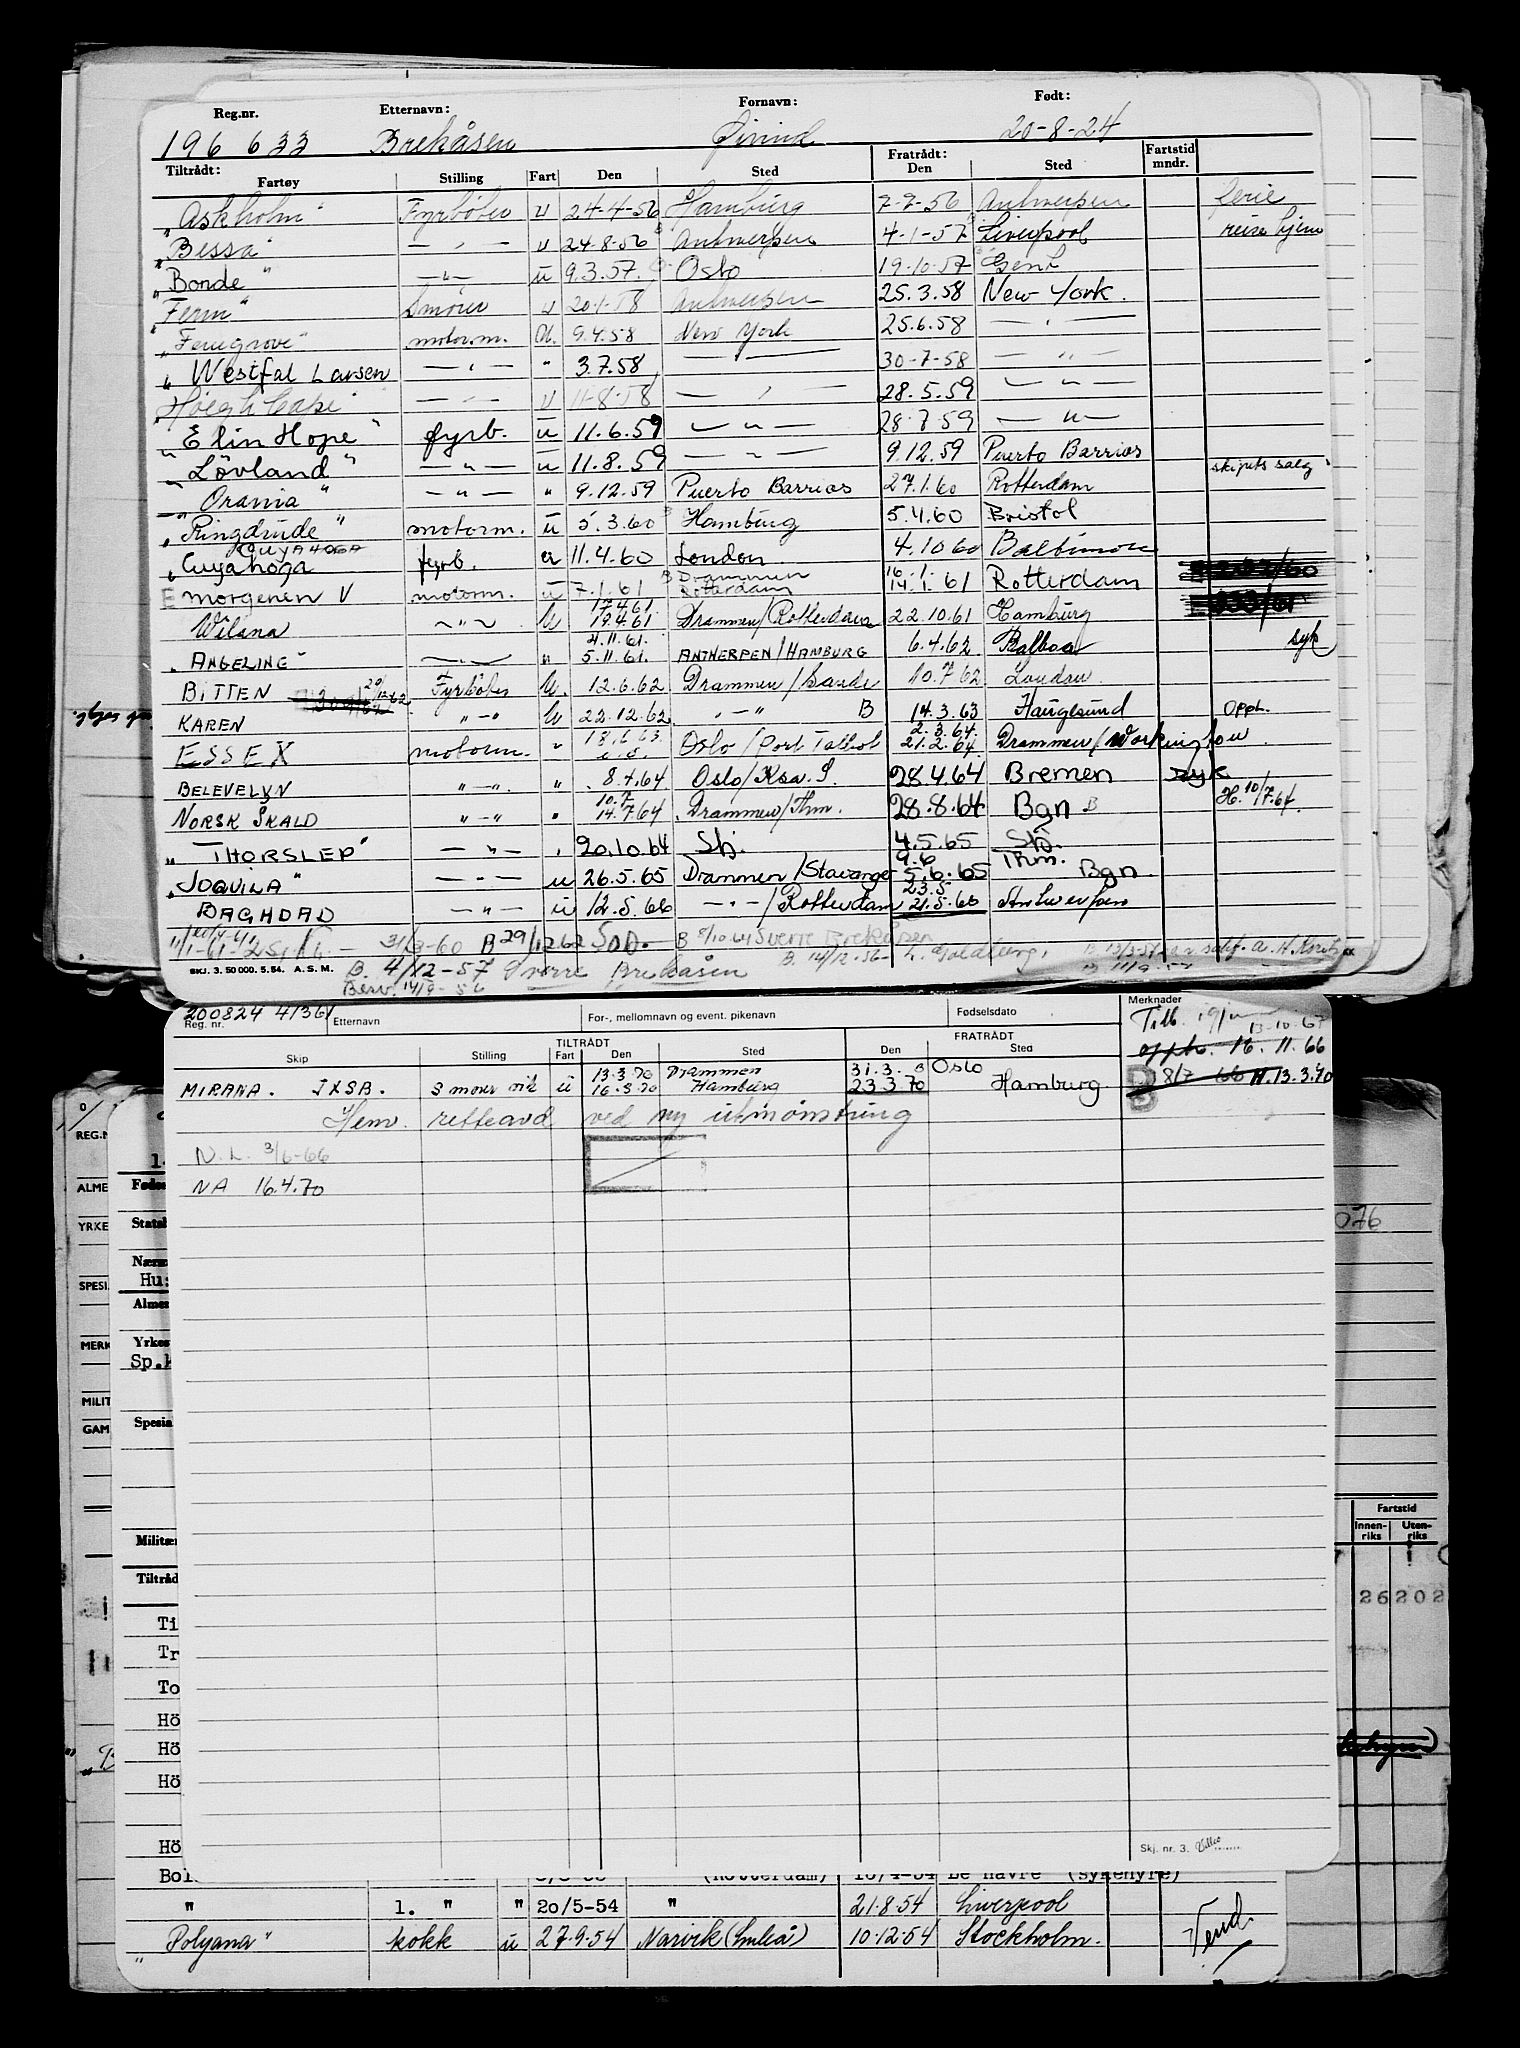 Reg.nr. Etternavn: Fornavn: Født:
196 633 Brekåsen Øivind 20-8-24
Tiltrådt: Fratrådt: Fartstid mndr.
Fartøy Stilling Fart Den Sted Den Sted
"Askholm" Fyrbøter u 24-4-56 Hamburg 7-7-56 Antwerpen ferie
"Bessa" — " — u 24-8-56 Antwerpen 4-1-57 Liverpool reise hjem
"Borde" — " — u 9.3.57. Oslo 19-10-57 Gent
"Ferm" Smører u 20-1-58 Antwerpen 25.3.58 New York.
"Ferngrove" motorm. U. 9.4.58 New York 25.6.58 — " —
"Westfal Larsen — " — " 3.7.58 — " — 30-7-58 — " —
Høegh Cape — " — u 11-8-58 — " — 28.5.59 — " —
"Elin Hope" fyrb. u 11.6.59 — " — 28.7.59 — " —
"Lövland" — " — u 11.8.59 — " — 9.12.59 Puerto Barrios
"Orania" — " — " 9.12.59 Puerto Barrios 27.1.60 Rotterdam skipets salg
"Ringdrude" motorm. u 5.3.60 Hamburg 5.4.60 Bristol
CUYAHOGA
"Cuyahoga fyrb. u 11.4.60 London 4.10 60 Baltimore
E morgenen V motorm. u 7.1.61 B Drammen Rotterdam 16.1. 14.1.61 Rotterdam
Wilana — " — u 17.4.61. 19.4.61 Drammen/Rotterdam 22.10.61 Hamburg
"ANGELINE" — " — " 4.11.61. 5.11.61. ANTWERPEN/HAMBURG 6.4.62 Balboa syk
BITTEN 29/12-62 Fyrbøter U. 12.6.62 Drammen/Sande 10.7 62 London
KAREN " — " U 22.12.62 " — " B 14.3.63 Haugesund Opph.
ESSEX motorm. " 18.6.63 Oslo/Port Talbot 2.3.64. 21.2.64 Drammen/Workington
BELEVELYN " — " " 8.4.64 Oslo/Ksa. S. 28.4.64 Bremen syk
NORSK SKALD " — " " 10.7 14.7.64 Drammen/Thm. 28.8.64 Bgn B H. 10/7.64
"THORSLEP" — " — " 20.10.64 Sbj. 4.5.65 Sbj.
"JOQUILA" — " — u 26.5.65 Drammen/Stavanger 9.6 5.6.65 Thm. Bgn
BAGHDAD — " — u 12.5.66 — " — /Rotterdam 23.5 21.5.66 Antwerpen
31/3-60 B 29/12 62 Søn. B 8/10 64 Sverre Brekåsen
SKJ. 3. 50 000. 5.54. A.S.M. B. 4/12-57 Sverre Brekåsen B. 14/12-56- L. Goldberg.
Berv. 14/9-56
200824 41361
Reg. nr. Etternavn For-, mellomnavn og event. pikenavn Fødselsdato Merknader
TILTRÅDT FRATRÅDT
Skip Stilling Fart Den Sted Den Sted
13-10-67
oppb. 16.11.66
MIRANA. JXSB. u 13-3-70 16-3-70 Drammen Hamburg 31.3. 23.3.70 Oslo Hamburg. 8/7 66 H.13.3.70
Hem. retteavd ved ny utmønstring
N.L. 3/6-66
NA 16.4.70
Skj. nr. 3.
REG.N
ALME
YRKE
SPESI
MERK
MILIT
GAM
Fødse
Statsb
Nærm
Hu:
Almer
Yrkes
Sp.k
Spesia
Militær
Tiltråd
Ti
Tr
To
Hö
Hö
Hö
Hö
076
Fartstid
Innen-riks Uten-riks
26202
Bol (Rotterdam) 10/4-54 Le Havre (sykehyre)
" 1. " " 20/5-54 " 21.8.54 Liverpool
"Polyana" kokk u 27.9.54 Narvik 10.12.54 Stockholm.
Vend.